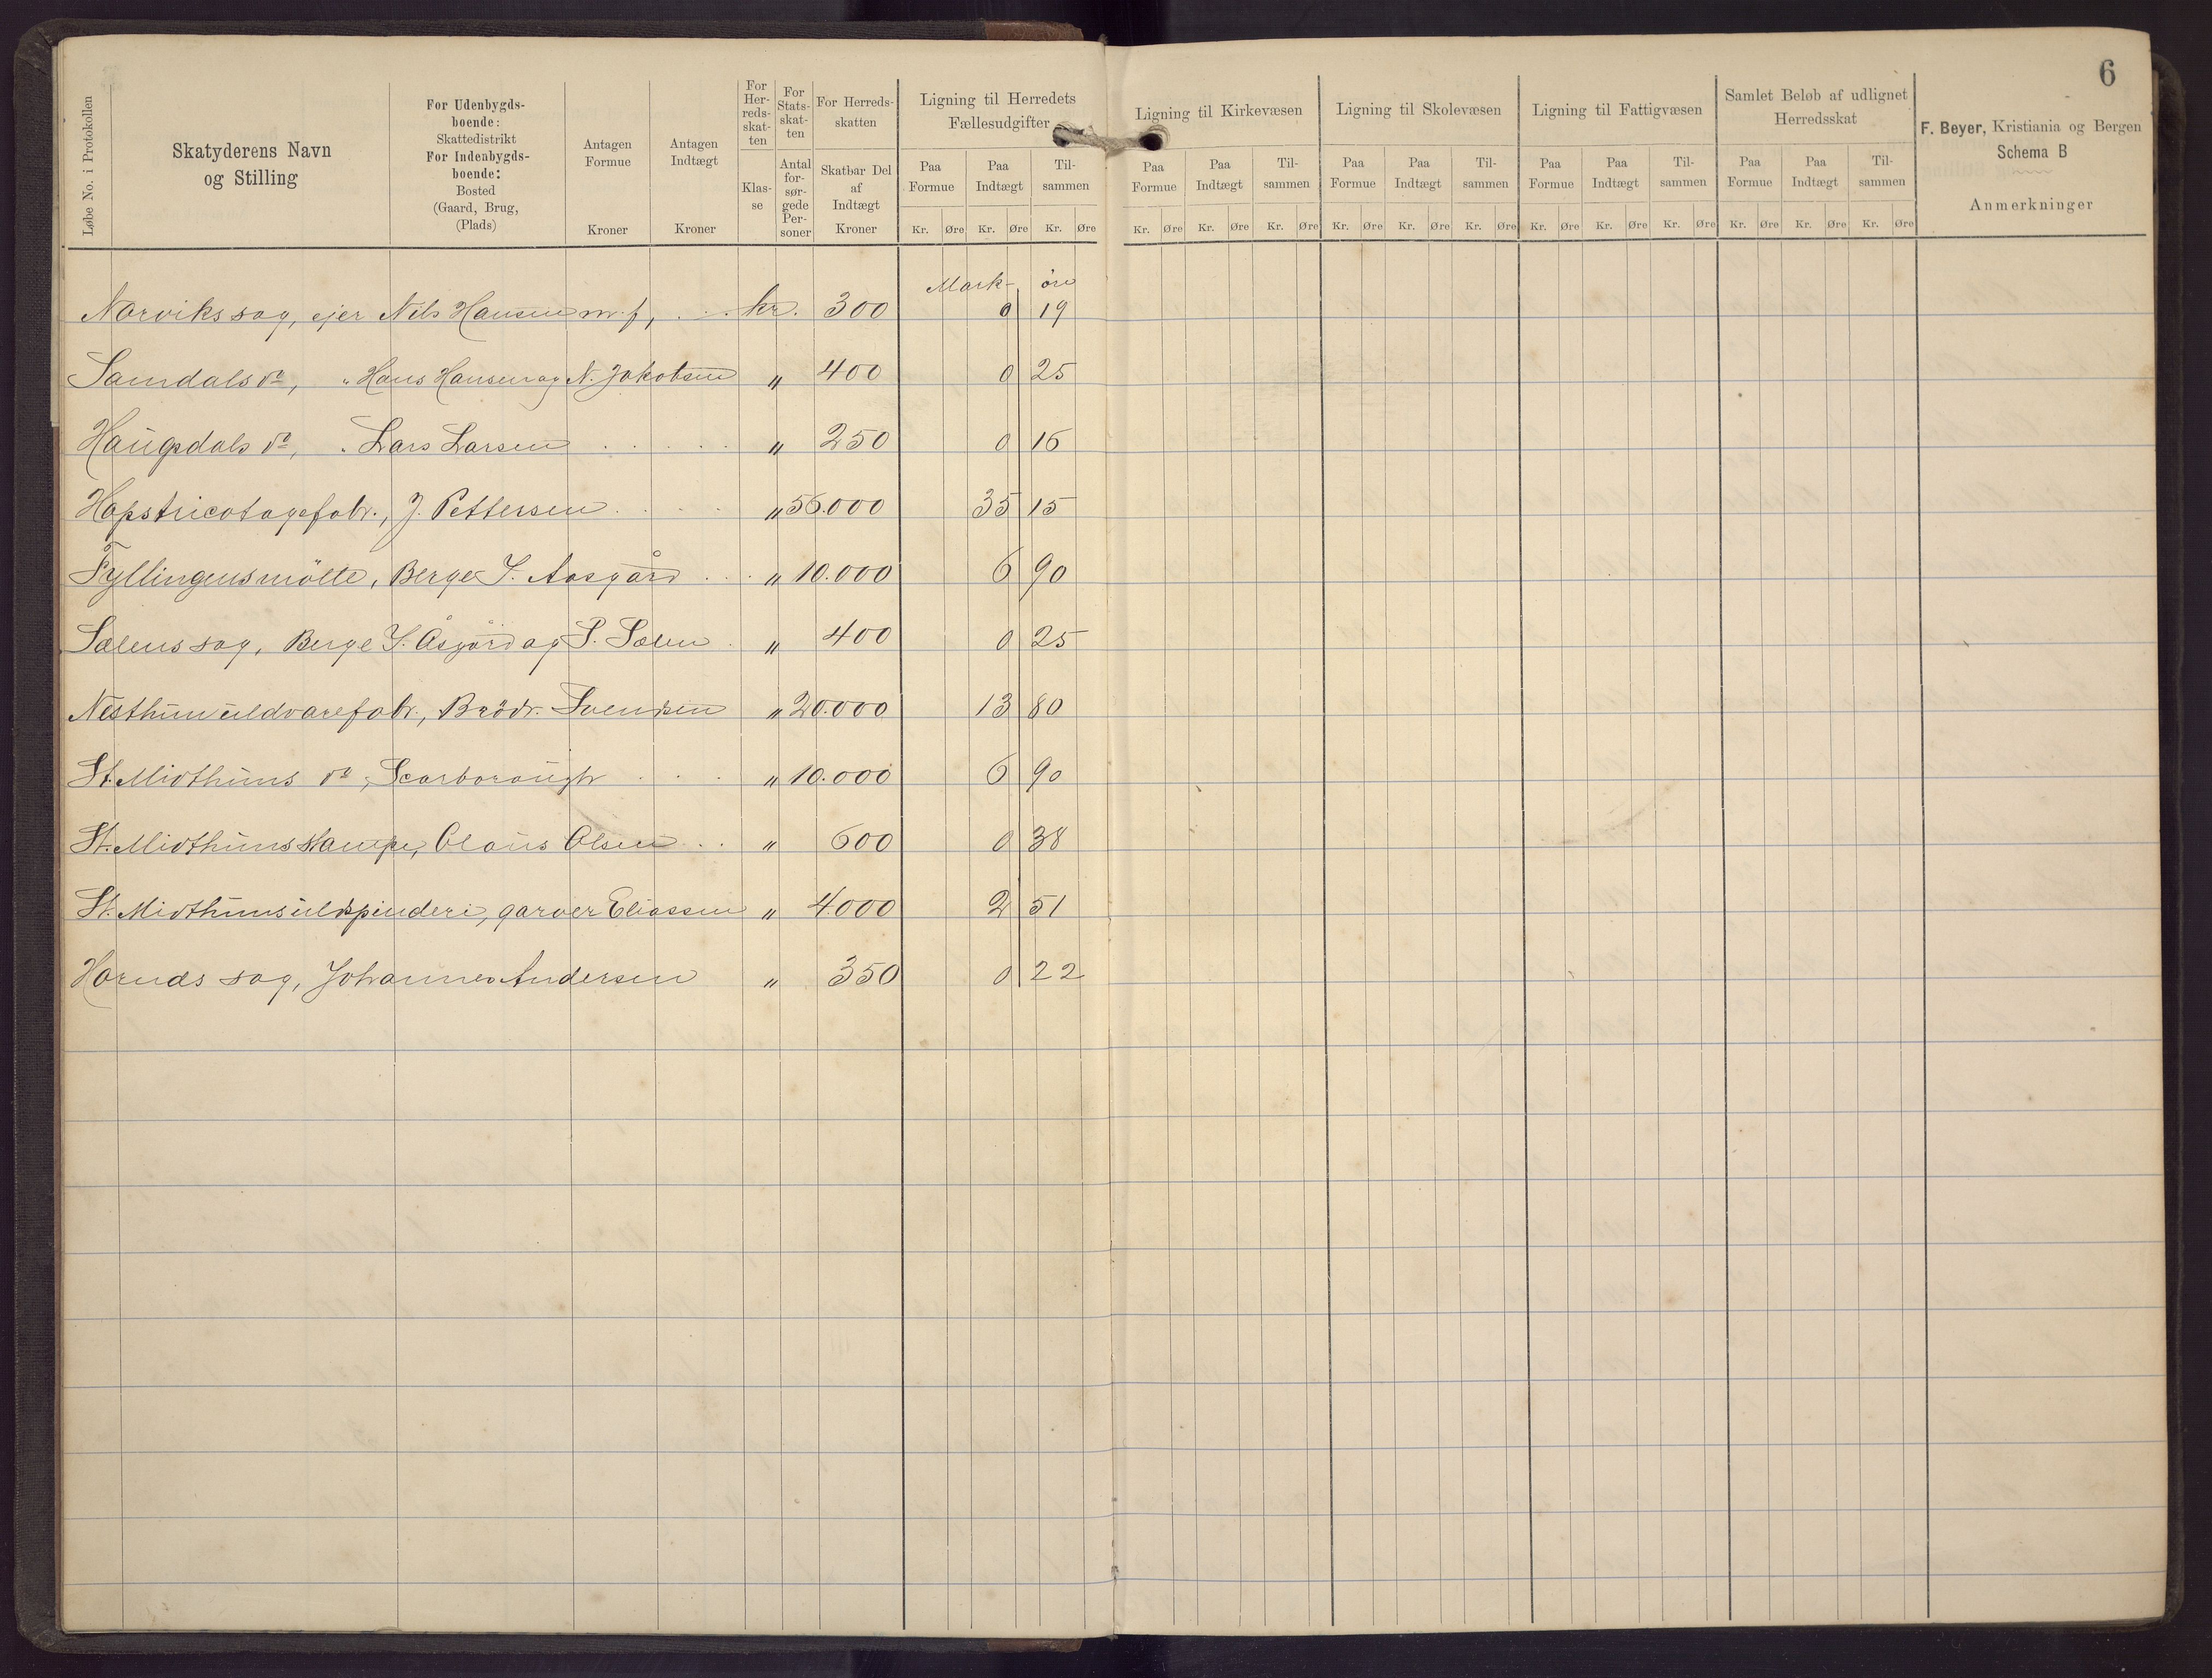 6
Løbe No. i Protokollen
Skatyderens Navn
og Stilling
For Udenbygds-
boende:
Skattedistrikt
For Indenbygds-
boende:
Bosted
(Gaard, Brug,
(Plads)
Antagen
Formue
Kroner
Antagen
Indtægt
Kroner
For
Her-
reds-
skat-
ten
Klas-
se
For
Stats-
skat-
ten
Antal
for-
sør-
gede
Per-
soner
For Herreds-
skatten
Skatbar Del
af
Indtægt
Kroner
Ligning til Herredets
Fællesudgifter
Paa Formue Paa Indtægt Til-sammen
Kr. Øre Kr. Øre Kr. Øre
Ligning til Kirkevæsen
Paa Formue Paa Indtægt Til-sammen
Kr. Øre Kr. Øre Kr. Øre
Ligning til Skolevæsen
Paa Formue Paa Indtægt Til-sammen
Kr. Øre Kr. Øre Kr. Øre
Ligning til Fattigvæsen
Paa Formue Paa Indtægt Til-sammen
Kr. Øre Kr. Øre Kr. Øre
Samlet Beløb af udlignet
Herredsskat
Paa Formue Paa Indtægt Til-sammen
Kr. Øre Kr. Øre Kr. Øre
F. Beyer, Kristiania og Bergen
Schema B
Anmerkninger
Mark øre
Narviks sag, ejer Nils Hansen m. f, kr. 300 0 19
Samdals do, " Hans Hansen og N. Jakobsen " 400 0 25
Haugsdals do, " Lars Larsen " 250 0 16
Hopstricotagefabr., J. Pettersen " 56.000 35 15
Fyllingensmölle, Berge S. Aasgård " 10.000 6 90
Sælens sag, Berge S. Åsgård og S. Sælen " 400 0 25
Nesthun uldvarefabr., Brödr. Svendsen " 20.000 13 80
St. Midthuns do, Scarborough " 10.000 6 90
St. Midthuns stampe, Olaus Olsen " 600 0 38
St. Midthuns uldspinderi, garver Eliassen " 4.000 2 51
Hornæs sag, Johannes Andersen " 350 0 22